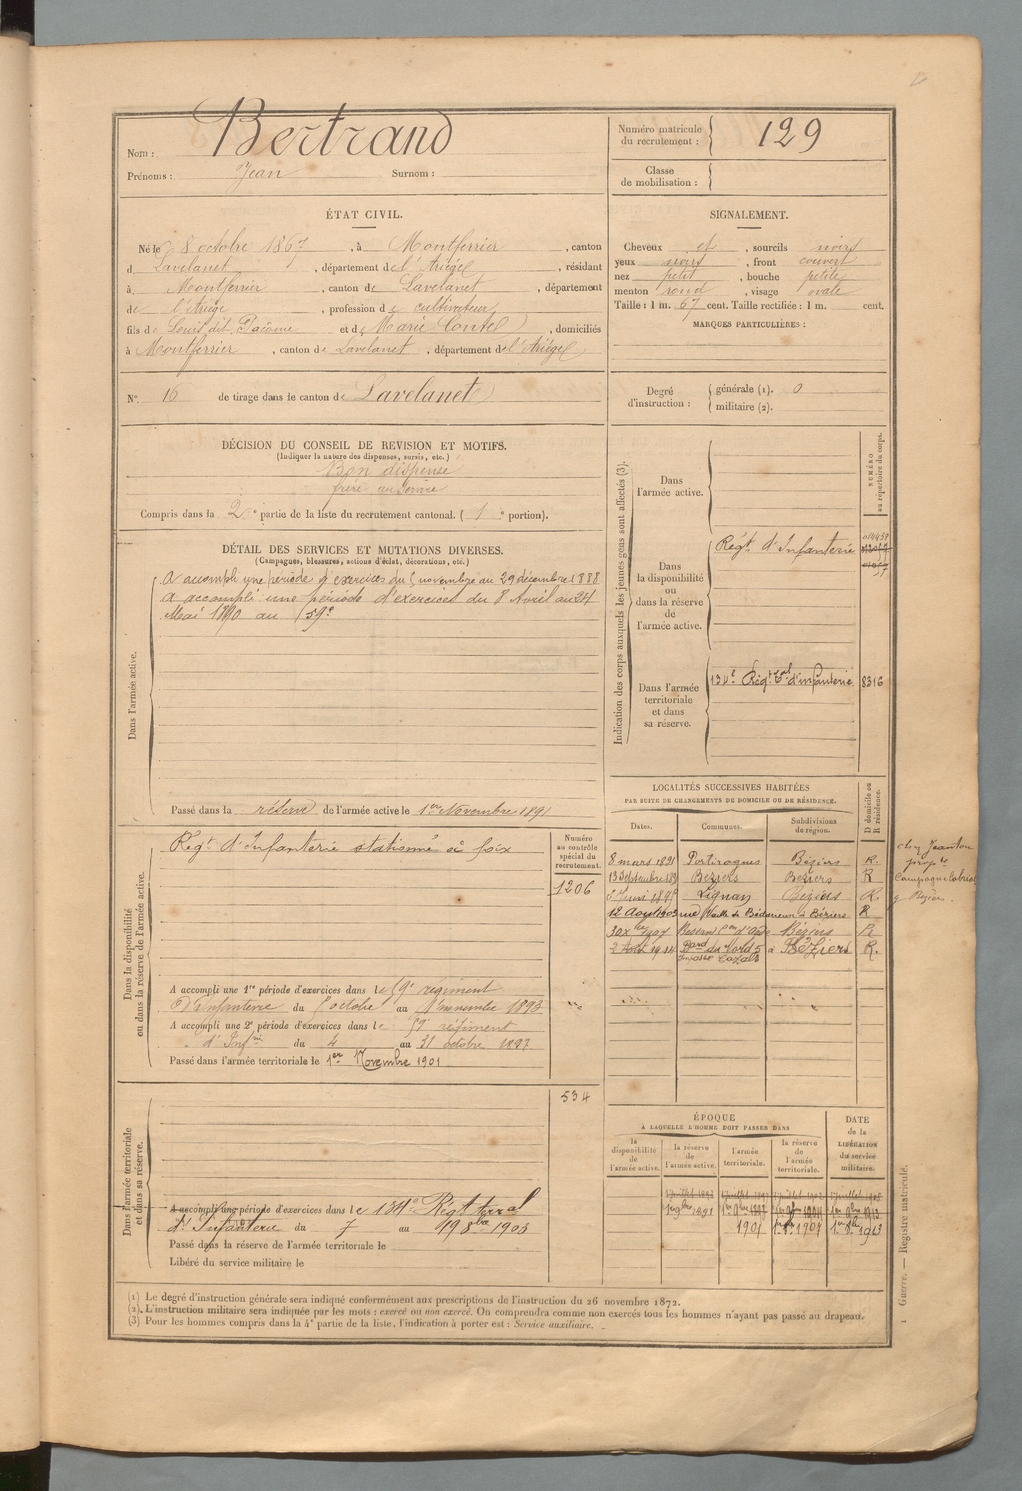 Nom : Bertrand
Prénoms : Jean Surnom :
Numéro matricule du recrutement : 129
Classe de mobilisation :
ÉTAT CIVIL.
Né le 8 octobre 1867, à Montferrier, canton
d Lavelanet, département de l'Ariège, résidant
à Montferrier, canton de Lavelanet, département
de l'Ariège, profession de cultivateur
fils de Louis dit Pacôme et de Marie Contel, domiciliés
à Montferrier, canton de Lavelanet, département de l'Ariège
N° 16 de tirage dans le canton de Lavelanet
SIGNALEMENT.
Cheveux et, sourcils noirs
yeux noirs, front couvert
nez petit, bouche petite
menton rond, visage ovale
Taille : 1 m. 67 cent. Taille rectifiée : 1 m. cent.
MARQUES PARTICULIÈRES :
Degré d'instruction : générale (1). 0
militaire (2).
DÉCISION DU CONSEIL DE REVISION ET MOTIFS.
(Indiquer la nature des dispenses, sursis, etc.)
Bon dispensé
frère au service
Compris dans la 2e partie de la liste du recrutement cantonal. (1e portion).
DÉTAIL DES SERVICES ET MUTATIONS DIVERSES.
(Campagnes, blessures, actions d'éclat, décorations, etc.)
Dans l'armée active.
A accompli une période d'exercices du novembre au 29 décembre 1888
A accompli une période d'exercices du 8 Avril au 24
Mai 1890 au 59e
Passé dans la réserve de l'armée active le 1er Novembre 1891
Indication des corps auxquels les jeunes gens sont affectés (3).
NUMÉRO au répertoire du corps.
Dans l'armée active.
Dans la disponibilité ou dans la réserve de l'armée active.
Régt d'Infanterie
Dans l'armée territoriale et dans sa réserve.
134e Régt tal d'infanterie 8316
Dans la disponibilité ou dans la réserve de l'armée active.
Régt d'Infanterie stationné à Foix
Numéro au contrôle spécial du recrutement.
1206
A accompli une 1re période d'exercices dans le 59e régiment
d'Infanterie du octobre au novembre 1893
A accompli une 2e période d'exercices dans le 59e régiment
d'Infrie du 4 au 31 octobre 1897
Passé dans l'armée territoriale le 1er Novembre 1901
LOCALITÉS SUCCESSIVES HABITÉES
PAR SUITE DE CHANGEMENTS DE DOMICILE OU DE RÉSIDENCE.
Dates. Communes. Subdivisions de région. D domicile ou R résidence.
8 mars 1891 Portiragnes Béziers R.
13 Septembre Béziers Béziers R
Juin Lignan Béziers R.
12 Août 1903 rue à Béziers R
30 1907 Bessan Con d'Agde Béziers R
2 Août 1914 Bard du Nord 5 à Béziers R.
Impasse Cazals
chez Jeanton
propre
Campagne
Béziers.
Dans l'armée territoriale et dans sa réserve.
534
A accompli une période d'exercices dans le 134e Régt terral
d'Infanterie du 7 au 19 8bre 1903
Passé dans la réserve de l'armée territoriale le
Libéré du service militaire le
ÉPOQUE
A LAQUELLE L'HOMME DOIT PASSER DANS
la disponibilité de l'armée active. la réserve de l'armée active. l'armée territoriale. la réserve de l'armée territoriale. DATE de la LIBÉRATION du service militaire.
1er 9bre 1891
1901
(1) Le degré d'instruction générale sera indiqué conformément aux prescriptions de l'instruction du 26 novembre 1872.
(2). L'instruction militaire sera indiquée par les mots : exercé ou non exercé. On comprendra comme non exercés tous les hommes n'ayant pas passé au drapeau.
(3) Pour les hommes compris dans la 4e partie de la liste, l'indication à porter est : Service auxiliaire.
Guerre. — Registre matricule.